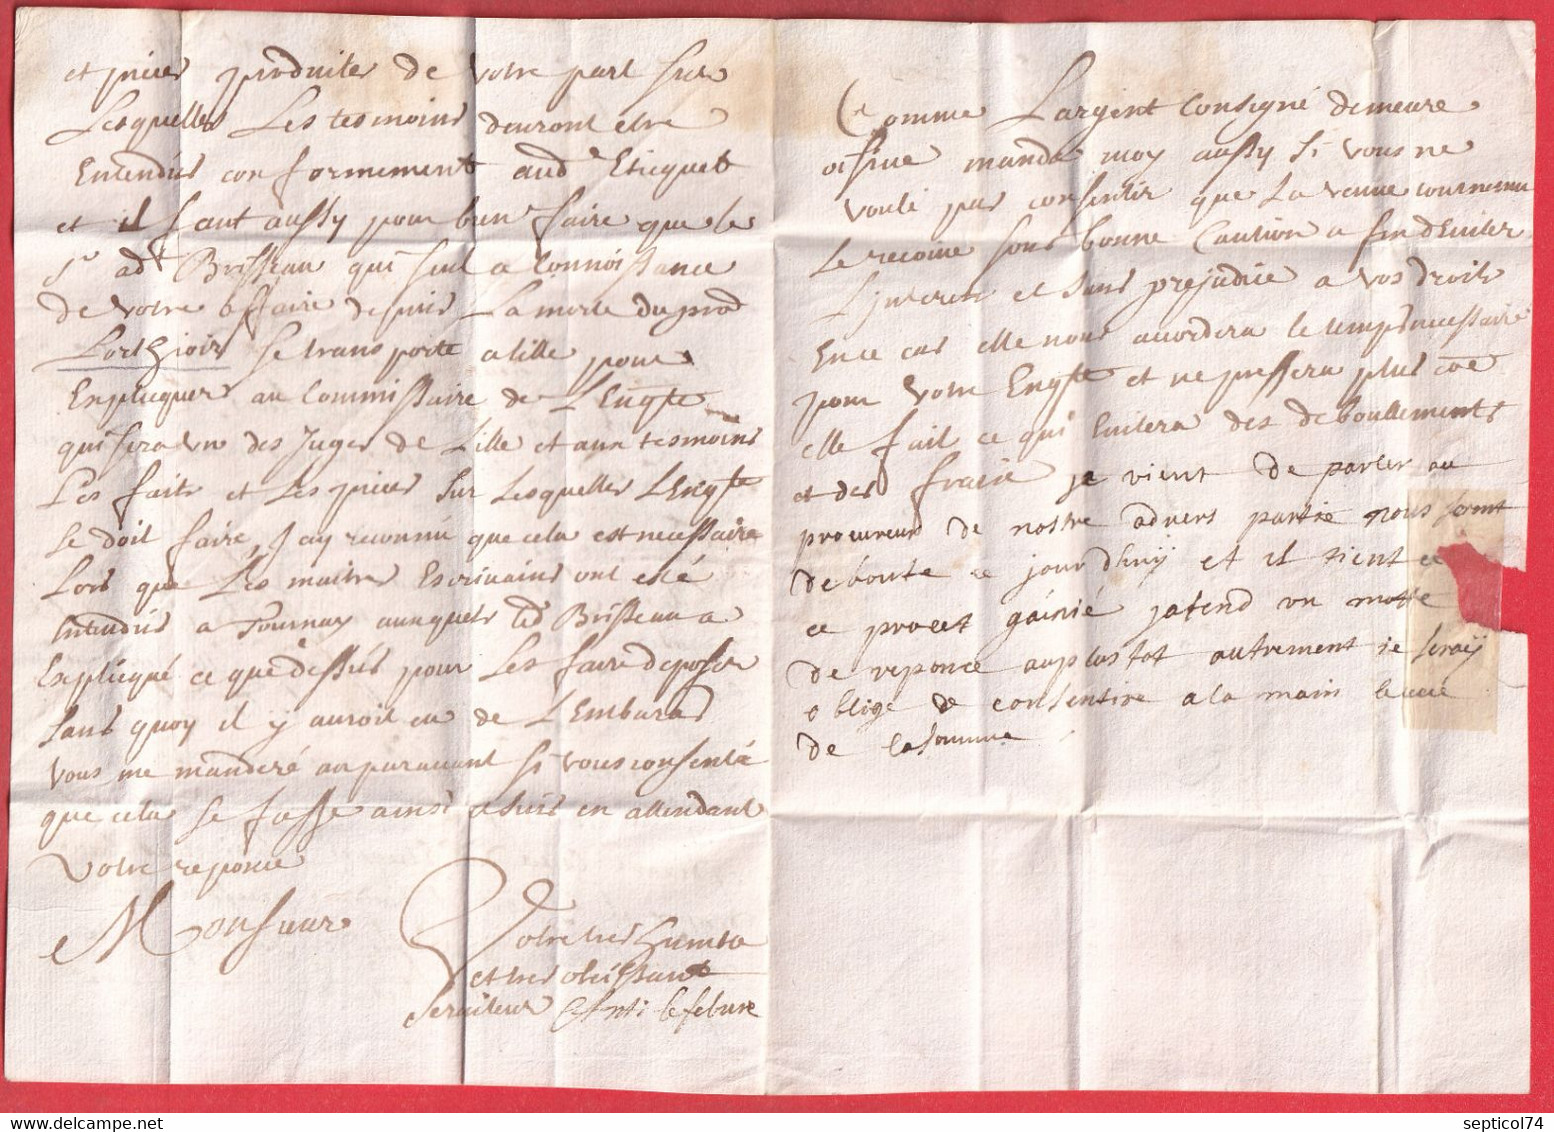 et pieces produites de votre part sur
Lesquelles Les tesmoins deuront etre
Entendus conformement aud.t Eticquet
et il faut aussy pour bien faire que le
S.r ad.t Brisseau qui seul a Connoissance
de votre affaire depuis La morte du prod
Lorthioir se transporte a lille pour
Expliequer au Commissaire de L'Enq.te
qui sera un des Juges de Lille et aux tesmoins
Les faits et Les pieces sur Lesquelles L'Enq.te
se doit faire, J'ay reconnu que cela est necessaire
Lors que Les maitres Escriuains ont esté
Entendus a Tournay auxquels led Brisseau a
Explicqué ce que dessus pour Les faire deposer
sans quoy il y auroit eu de L'Embaras
vous me manderé auparauant si vous consenté
que cela se fasse ainsi a suis en attendant
votre reponce
Monsieur
Votre tres humble
et tres obeissant
seruiteur Lefebure
Comme L'argent Consigné demeure
oisiue mandé moy aussy si vous ne
voulé pas consentir que La veuue tournemn
Le recoiue sous bonne Caution a fin d'Euiter
L'jnterets et sans prejudice a vos droits
En ce cas elle nous accordera le temps necessaire
pour votre Enq.te et ne pressera plus coe
elle fait ce qui Euitera des deboursements
et des fraix je vient de parler au
procureur de nostre aduers partie nous somt
deboute ce jourdhuÿ et il tient ce
ce procet gainié jatend un mots
de reponce auplustot autrement ie seraÿ
oblige de consentire a la main leuée
de la somme
septicol74